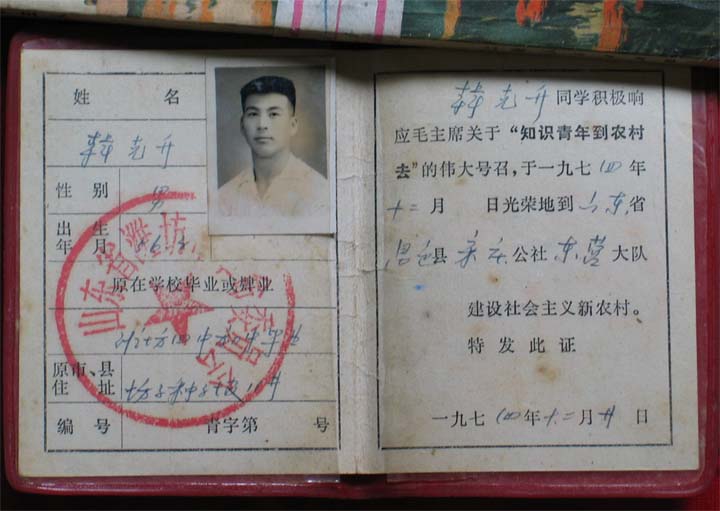 姓 名
韩克升
性 别 男
出 生
年 月
原在学校毕业或肄业
原市、县
住 址
编 号 青字第 号
山东省潍坊
韩克升同学积极响
应毛主席关于“知识青年到农村
去”的伟大号召,于一九七四年
十二月 日光荣地到山东省
昌邑县 公社东营大队
建设社会主义新农村。
特 发 此 证
一九七四年十二月廿日